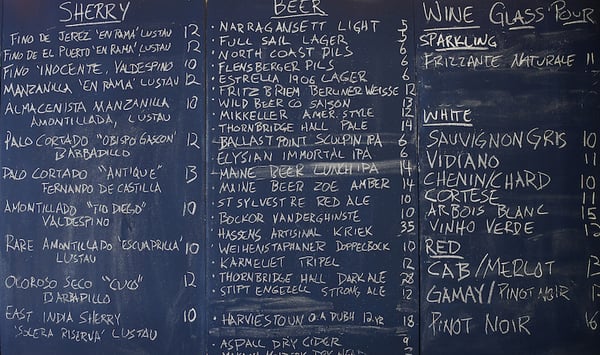 SHERRY
FINO DE JEREZ 'EN RAMA' LUSTAU 12
FINO DE EL PUERTO 'EN RAMA' LUSTAU 12
FINO 'INOCENTE, VALDESPINO 10
MANZANILLA 'EN RAMA' LUSTAU 12
ALMACENISTA MANZANILLA 10
AMONTILLADA, LUSTAU
PALO CORTADO "OBISPO GASCON' 12
BARBADILLO
PALO CORTADO "ANTIQUE" 13
FERNANDO DE CASTILLA
AMONTILLADO "TIO DIEGO" 10
VALDESPINO
RARE AMONTILLADO 'ESCUADRILLA' 10
LUSTAU
OLOROSO SECO "CUCO" 12
BARBADILLO
EAST INDIA SHERRY 10
'SOLERA RISERVA' LUSTAU
BEER
· NARRAGANSETT LIGHT 5
· FULL SAIL LAGER 5
· NORTH COAST PILS 6
· FLENSBERGER PILS 6
· ESTRELLA 1906 LAGER 6
· FRITZ BRIEM BERLINER WEISSE 12
· WILD BEER CO SAISON 13
· MIKKELLER AMER. STYLE 12
· THORNBRIDGE HALL PALE 14
· BALLAST POINT SCULPIN IPA 6
· ELYSIAN IMMORTAL IPA 6
· MAINE BEER LUNCH IPA 14
· MAINE BEER ZOE AMBER 14
· ST SYLVESTRE RED ALE 10
· BOCKOR VANDERGHINSTE 10
· HASSENS ARTISINAL KRIEK 35
· WEIHENSTAPHANER DOPPELBOCK 10
· KARMELIET TRIPEL 12
· THORNBRIDGE HALL DARK ALE 28
· STIFT ENGEZELL STRONG ALE 12
· HARVIESTOUN OLA DUBH 12 YR 18
· ASPALL DRY CIDER 9
WINE GLASS POUR
SPARKLING
FRIZZANTE NATURALE 11
WHITE
SAUVIGNON GRIS 10
VIDIANO 11
CHENIN/CHARD 10
CORTESE 11
ARBOIS BLANC 15
VINHO VERDE 12
RED
CAB/MERLOT 13
GAMAY/PINOT NOIR
PINOT NOIR 16